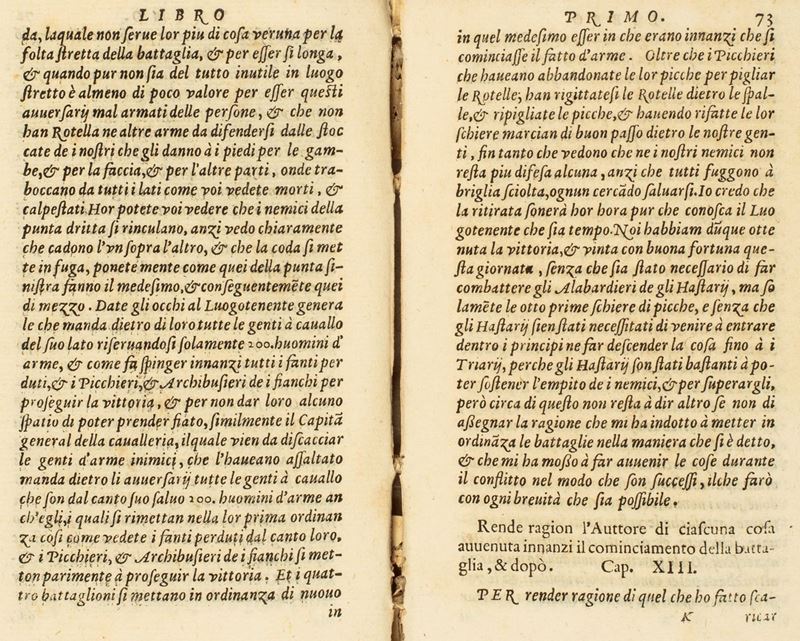 LIBRO
da, laquale non ſerue lor piu di coſa veruna per la
folta ſtretta della battaglia, & per eſſer ſi longa,
& quando pur non ſia del tutto inutile in luogo
ſtretto è almeno di poco valore per eſſer queſti
auuerſarij mal armati delle perſone, & che non
han Rotella ne altre arme da difenderſi dalle ſtoc
cate de i noſtri che gli danno à i piedi per le gam-
be, & per la faccia, & per l'altre parti, onde tra-
boccano da tutti i lati come voi vedete morti, &
calpeſtati. Hor potete voi vedere che i nemici della
punta dritta ſi rinculano, anzi vedo chiaramente
che cadono l'vn ſopra l'altro, & che la coda ſi met
te in fuga, ponete mente come quei della punta ſi-
niſtra fanno il medeſimo, & conſeguentemēte quei
di mezzo. Date gli occhi al Luogotenente genera
le che manda dietro di loro tutte le genti à cauallo
del ſuo lato riſeruandoſi ſolamente 200. huomini d'
arme, & come fa ſpinger innanzi tutti i fanti per
duti, & i Picchieri, & Archibuſieri de i fianchi per
proſeguir la vittoria, & per non dar loro alcuno
ſpatio di poter prender fiato, ſimilmente il Capitā
general della caualleria, ilquale vien da diſcacciar
le genti d'arme inimici, che l'haueano aſſaltato
manda dietro li auuerſarij tutte le genti à cauallo
che ſon dal canto ſuo ſaluo 200. huomini d'arme an
ch'egli, i quali ſi rimettan nella lor prima ordinan
za coſi come vedete i fanti perduti dal canto loro,
& i Picchieri, & Archibuſieri de i fianchi ſi met-
ton parimente à proſeguir la vittoria. Et i quat-
tro battaglioni ſi mettano in ordinanza di nuouo
in
PRIMO. 73
in quel medeſimo eſſer in che erano innanzi che ſi
cominciaſſe il fatto d'arme. Oltre che i Picchieri
che haueano abbandonate le lor picche per pigliar
le Rotelle, han rigittateſi le Rotelle dietro le ſpal-
le, & ripigliate le picche, & hauendo rifatte le lor
ſchiere marcian di buon paſſo dietro le noſtre gen-
ti, fin tanto che vedono che ne i noſtri nemici non
reſta piu difeſa alcuna, anzi che tutti fuggono à
briglia ſciolta, ognun cercādo ſaluarſi. Io credo che
la ritirata ſonerà hor hora pur che conoſca il Luo
gotenente che ſia tempo. Noi habbiam dūque otte
nuta la vittoria, & vinta con buona fortuna que-
ſta giornata, ſenza che ſia ſtato neceſſario di far
combattere gli Alabardieri de gli Haſtarij, ma ſo
lamēte le otto prime ſchiere di picche, e ſenza che
gli Haſtarij ſienſtati neceſſitati di venire à entrare
dentro i principi ne far deſcender la coſa fino à i
Triarij, perche gli Haſtarij ſon ſtati baſtanti à po-
ter ſoſtener l'empito de i nemici, & per ſuperargli,
però circa di queſto non reſta à dir altro ſe non di
aßegnar la ragione che mi ha indotto à metter in
ordināza le battaglie nella maniera che ſi è detto,
& che mi ha moßo à far auuenir le coſe durante
il conflitto nel modo che ſon ſucceſſi, ilche farò
con ogni breuità che ſia poſſibile.
Rende ragion l'Auttore di ciaſcuna coſa
auuenuta innanzi il cominciamento della batta-
glia, & dopò. Cap. XIII.
PER render ragione di quel che ho fatto ſca-
K ricar